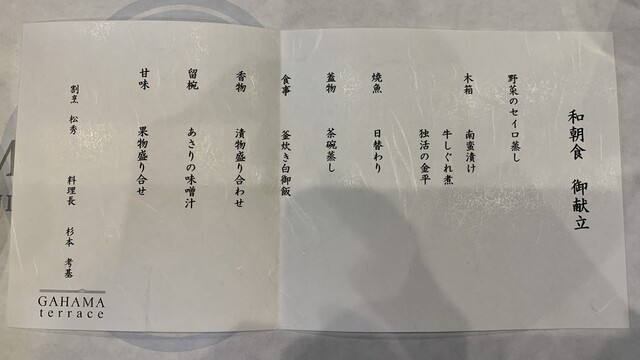 和朝食 御献立
野菜のセイロ蒸し
木箱 南蛮漬け
牛しぐれ煮
独活の金平
焼魚 日替わり
蓋物 茶碗蒸し
食事 釜炊き白御飯
香物 漬物盛り合わせ
留椀 あさりの味噌汁
甘味 果物盛り合せ
割烹 松秀 料理長 杉本 考基
GAHAMA
terrace